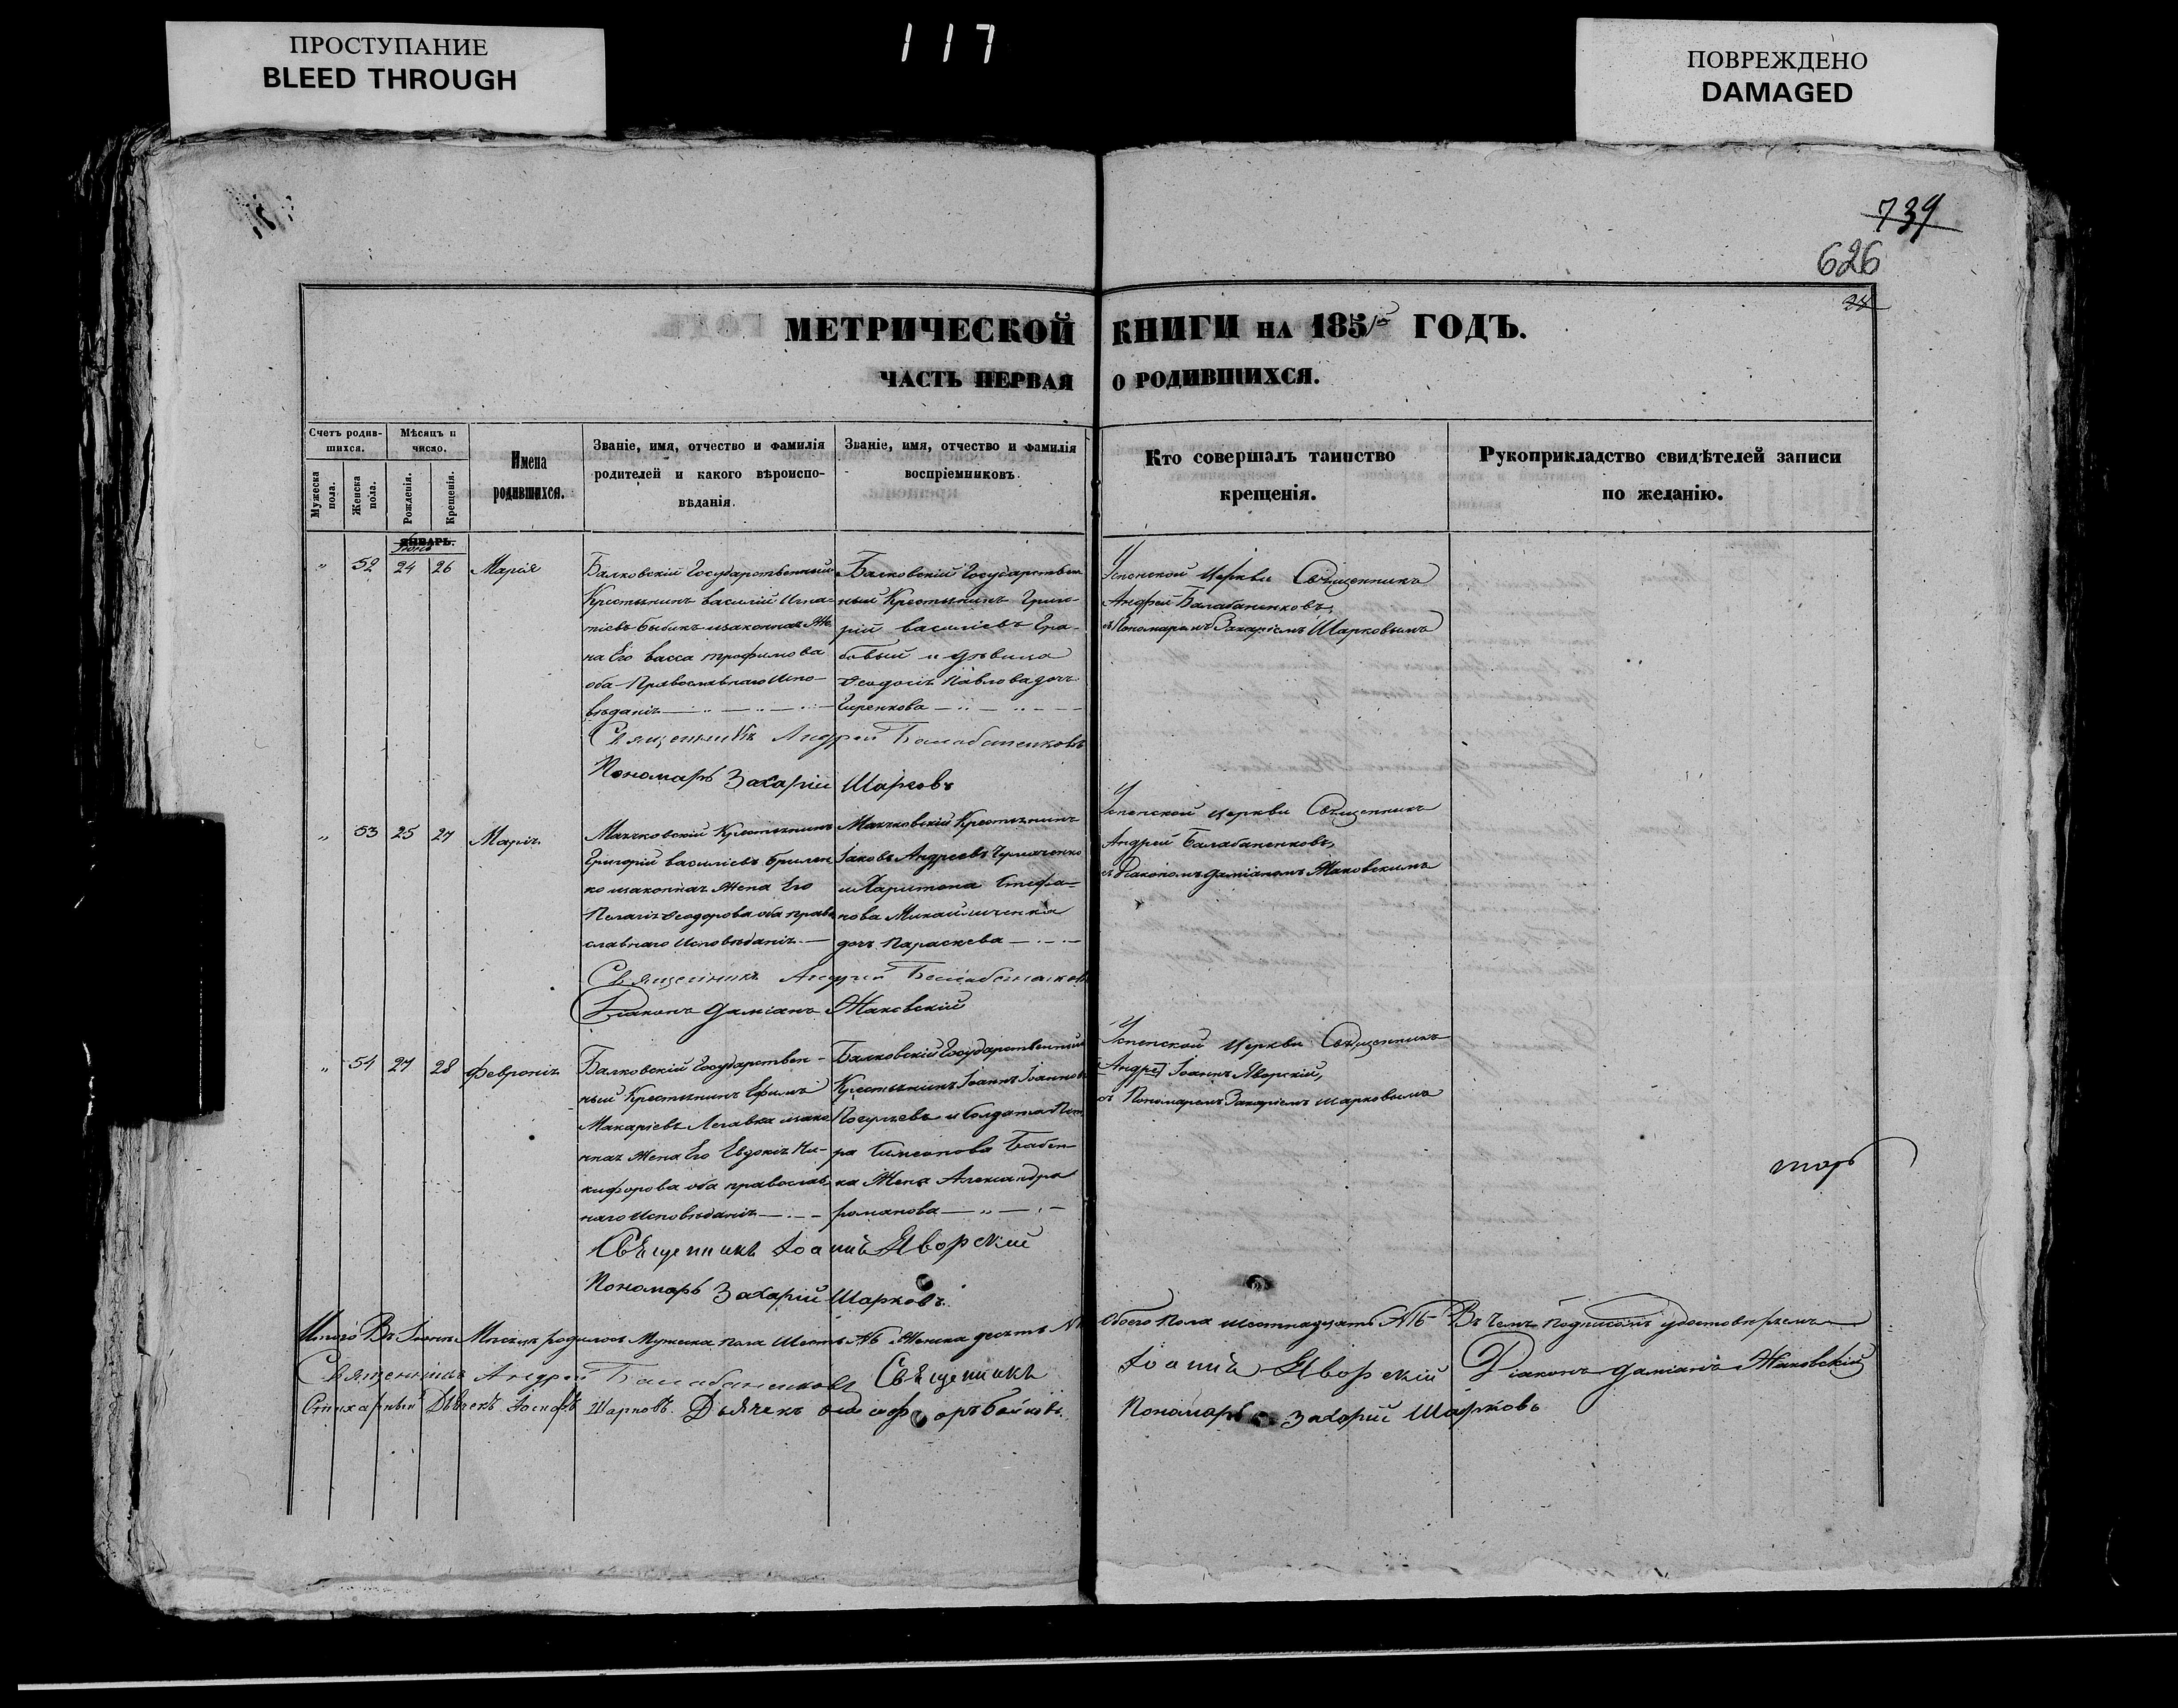 ПРОСТУПАНИЕ
BLEED THROUGH
117
ПОВРЕЖДЕНО
DAMAGED
739
626
МЕТРИЧЕСКОЙ КНИГИ НА 185 ГОДЪ.
ЧАСТЬ ПЕРВАЯ О РОДИВШИХСЯ.
Счетъ родив-
шихся.
Мужеска
пола.
Женска
пола.
Мѣсяцъ и
число.
Рожденія.
Крещенія.
Имена
родившихся.
Званіе, имя, отчество и фамилія
родителей и какого вѣроиспо-
вѣданія.
Званіе, имя, отчество и фамилія
воспріемниковъ.
Кто совершалъ таинство
крещенія.
Рукоприкладство свидѣтелей записи
по желанію.
ЯНВАРЬ.
Іюнь
" 52 24 26 Марія
Балковскій Государственный
Крестьянинъ Василій Игна-
тіевъ Быбикъ и законная Же
на Его Васса Трофимова
оба Православнаго Испо-
вѣданія
Балковскій Государствен
ный Крестьянинъ Григо-
рій Василіевъ Гра-
бовый и дѣвица
Ѳеодосія Павлова доч
Гиренкова
Успенской Церкви Священникъ
Андрей Балабаненковъ,
съ Пономаремъ Захаріемъ Шарковымъ
Священникъ Андрей Балабаненковъ
Пономарь Захарій Шарковъ
" 53 25 27 Марія
Крестьянинъ
Григорій Василіевъ Брилен
ко и законная Жена Его
Пелагія Ѳеодорова оба право
славнаго Исповѣданія
Крестьянинъ
Іаковъ Андреевъ
и Харитона Стефа-
нова Михайличенка
доч Параскева
Успенской Церкви Священникъ
Андрей Балабаненковъ,
съ Діакономъ Даміаномъ Жаковскимъ
Священникъ Андрей Балабаненковъ
Діаконъ Даміанъ Жаковскій
" 54 27 28 Февронія
Балковскій Государствен-
ный Крестьянинъ Ефимъ
Макаріевъ и зако
нная Жена Его Евдокія Ни-
кифорова оба православ
наго Исповѣданія
Балковскій Государственный
Крестьянинъ Іоаннъ Іоанновъ
и Солдата Пет
ра Симеонова Бабен-
ка Жена Александра
Романова
Успенской Церкви Священникъ
Андре Іоаннъ Яворскій,
съ Пономаремъ Захаріемъ Шарковымъ
Священникъ Іоаннъ Яворскій
Пономарь Захарій Шарковъ
Итого Въ Іюнѣ Мѣсяцѣ родилось Мужеска пола Шесть №6 Женска десять Обоего Пола шестнадцать №16 Въ чемъ подписомъ удостовѣряемъ
Священникъ Андрей Балабаненковъ Священникъ Іоаннъ Яворскій Діаконъ Даміанъ Жаковскій
Стихарный Дьячекъ Іосифъ Шарковъ. Дьячекъ Пономарь Захарій Шарковъ